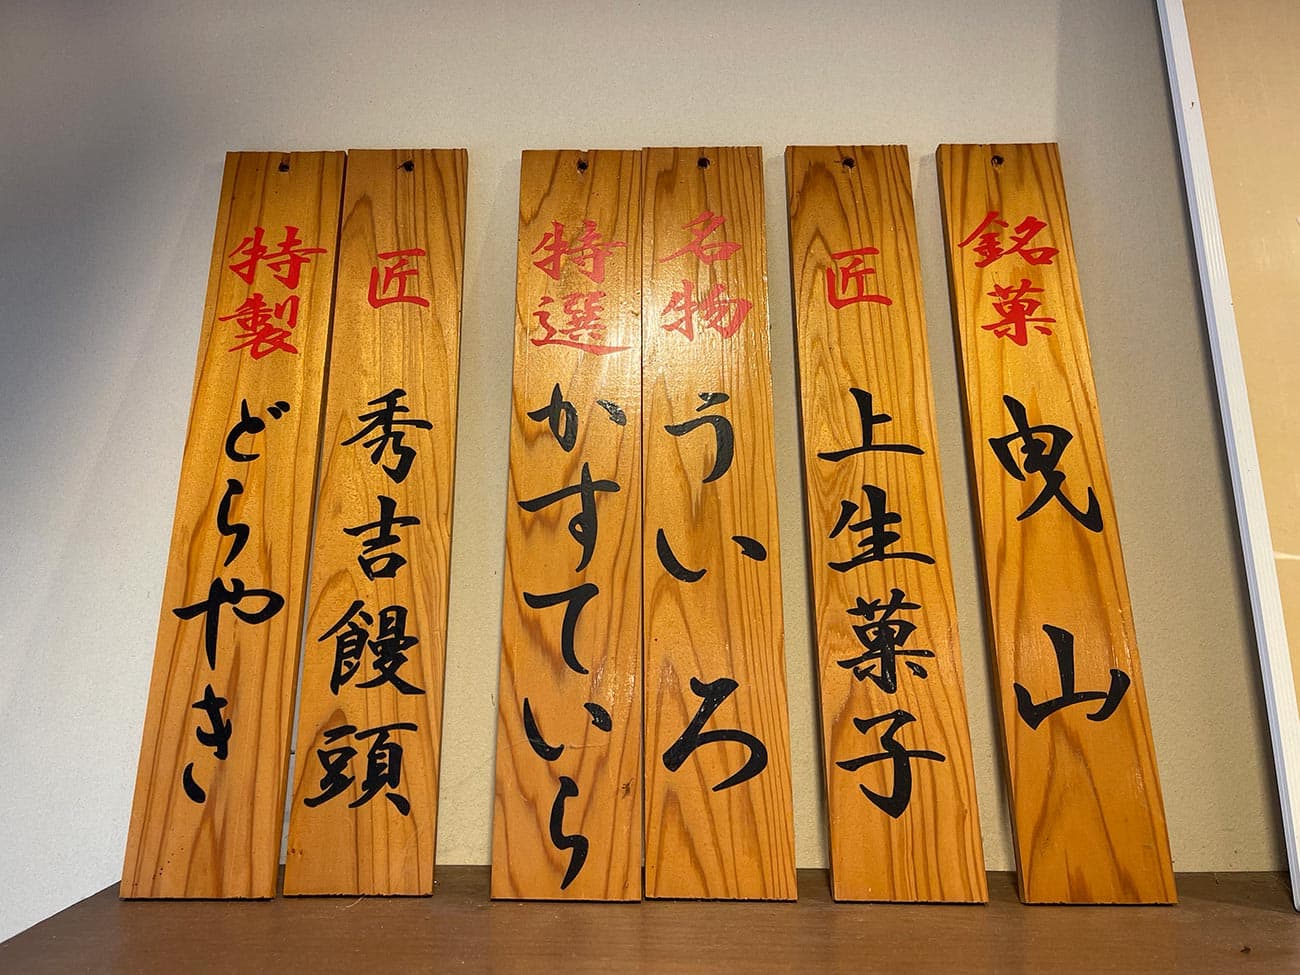 銘菓 曳山
匠 上生菓子
名物 ういろ
特選 かすていら
匠 秀吉饅頭
特製 どらやき